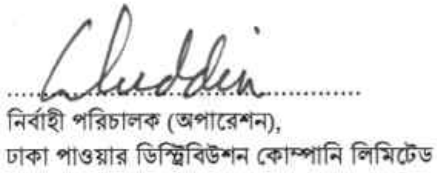 নির্বাহী পরিচালক (অপারেশন),
ঢাকা পাওয়ার ডিস্ট্রিবিউশন কোম্পানি লিমিটেড